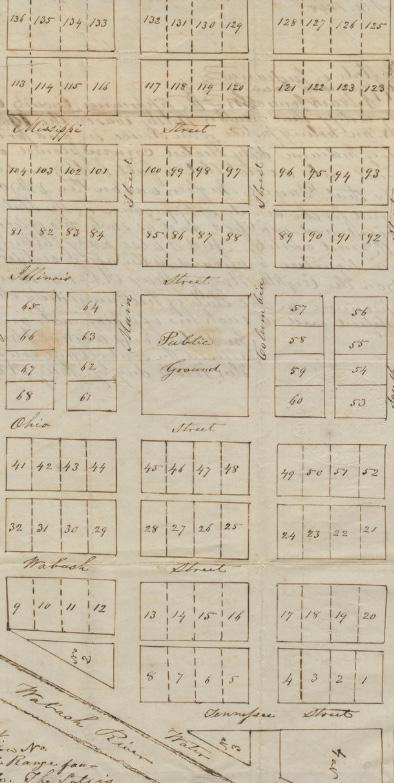 136 135 134 133 132 131 130 129 128 127 126 125
113 114 115 116 117 118 119 120 121 122 123 123
Missippi Street
104 103 102 101 100 99 98 97 96 95 94 93
Street Street
81 82 83 84 85 86 87 88 89 90 91 92
Illinois Street
Main Columbia
65 64 57 56
66 63 Public 58 55
67 62 Ground 59 54
68 61 60 53
Ohio Street
41 42 43 44 45 46 47 48 49 50 51 52
32 31 30 29 28 27 26 25 24 23 22 21
Wabash Street
9 10 11 12 13 14 15 16 17 18 19 20
8 7 6 5 4 3 2 1
Tennessee Street
Wabash River
Water
No.
Range four
The Lots is